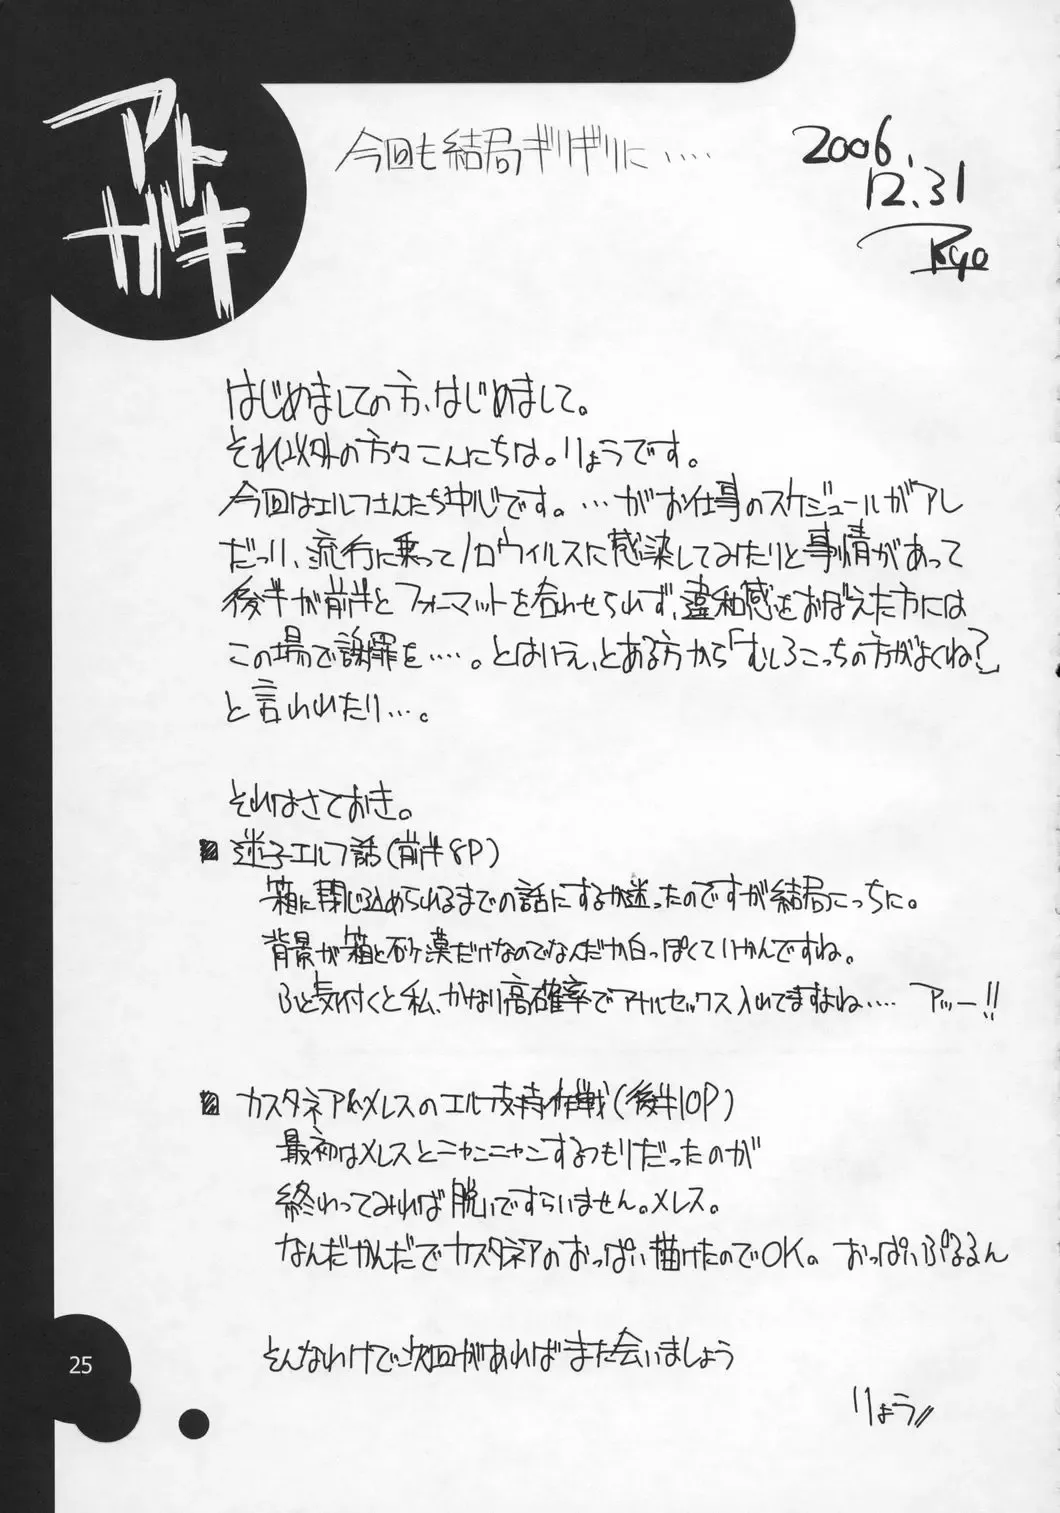 アト
ガキ
今回も結局ギリギリに・・・・
2006.
12.31
Ryo
はじめましての方、はじめまして。
それ以外の方々こんにちは。りょうです。
今回はエルフさんたち中心です。…がお仕事のスケジュールがアレ
だったり、流行に乗ってノロウィルスに感染してみたりと事情があって
後半が前半とフォーマットを合わせられず、違和感をおぼえた方には
この場で謝罪を‥‥。とはいえ、とある方から「むしろこっちの方がよくね?」
と言われたり…。
それはさておき。
迷子エルフ話(前半8P)
箱に閉じ込められるまでの話にするか迷ったのですが結局こっちに。
背景が箱と石ヶ藁だけなのでなんだか白っぽくていかんですね。
ふと気付くと私、かなり高確率でアナルセックス入れてますよね‥‥ アッー!!
カスタネア&メレスのエルフ支持作戦(後半10P)
最初はメレスとニャンニャンするつもりだったのが
終わってみれば脱いですらいません。メレス。
なんだかんだでカスタネアのおっぱい描けたのでOK。おっぱいぷるるん
そんなわけで次回があればまた会いましょう
りょう//
25